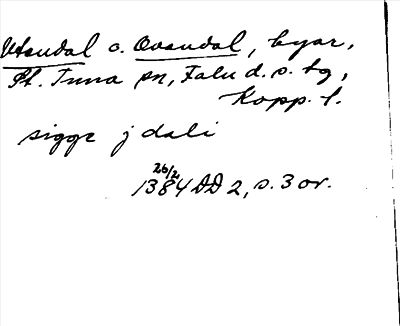 Utendal o. Ovandal, byar,
St. Tuna sn, Falu d. s. tg,
Kopp. l.
sigge j dali
26/2
1384 DD 2, s. 3 or.